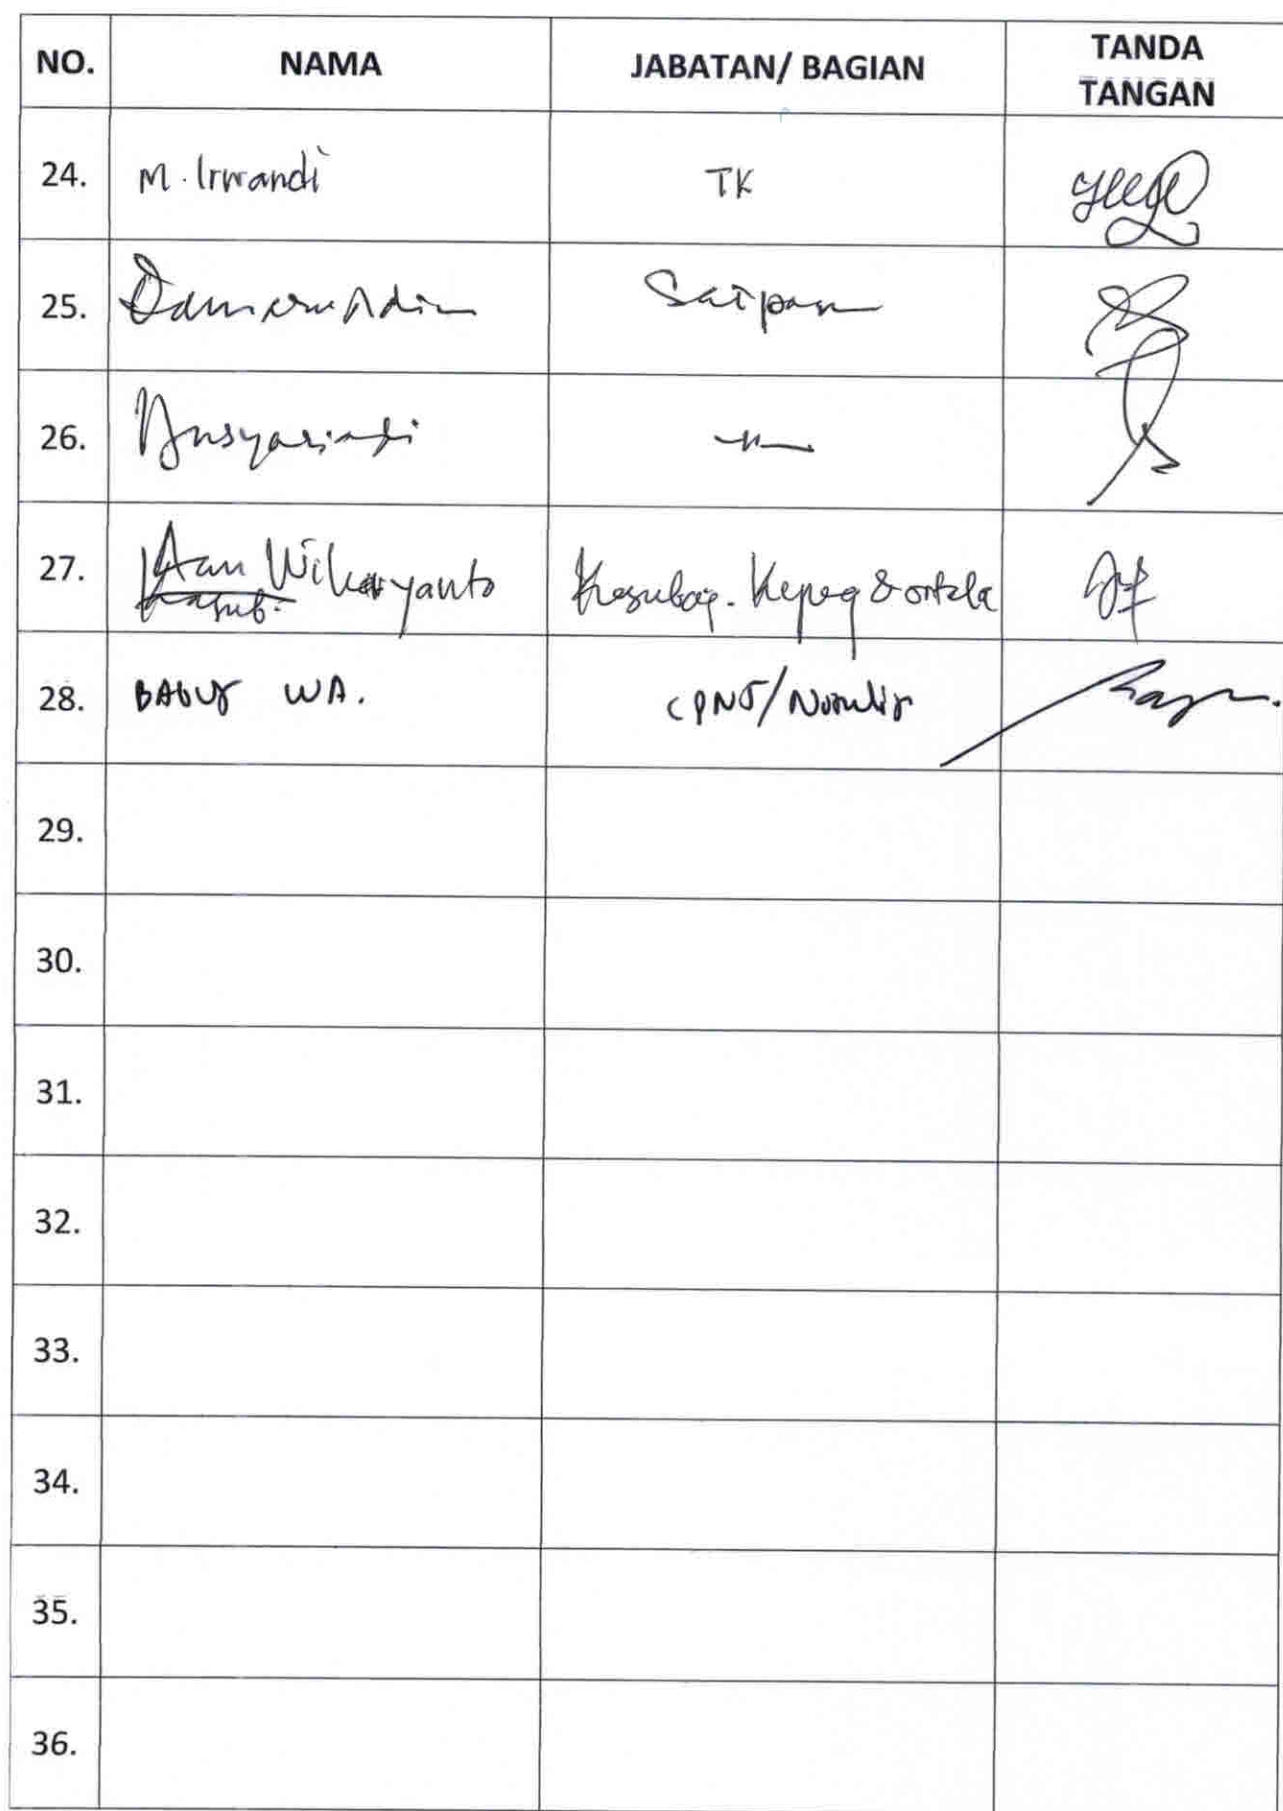 NO. NAMA JABATAN/ BAGIAN TANDA TANGAN
24. M. Irwandi TK
25. Satpam
26. -"-
27. Aan Wikaryanto Kasubag. Kepeg & ortala
28. BAGUS WA. CPNS/
29.
30.
31.
32.
33.
34.
35.
36.